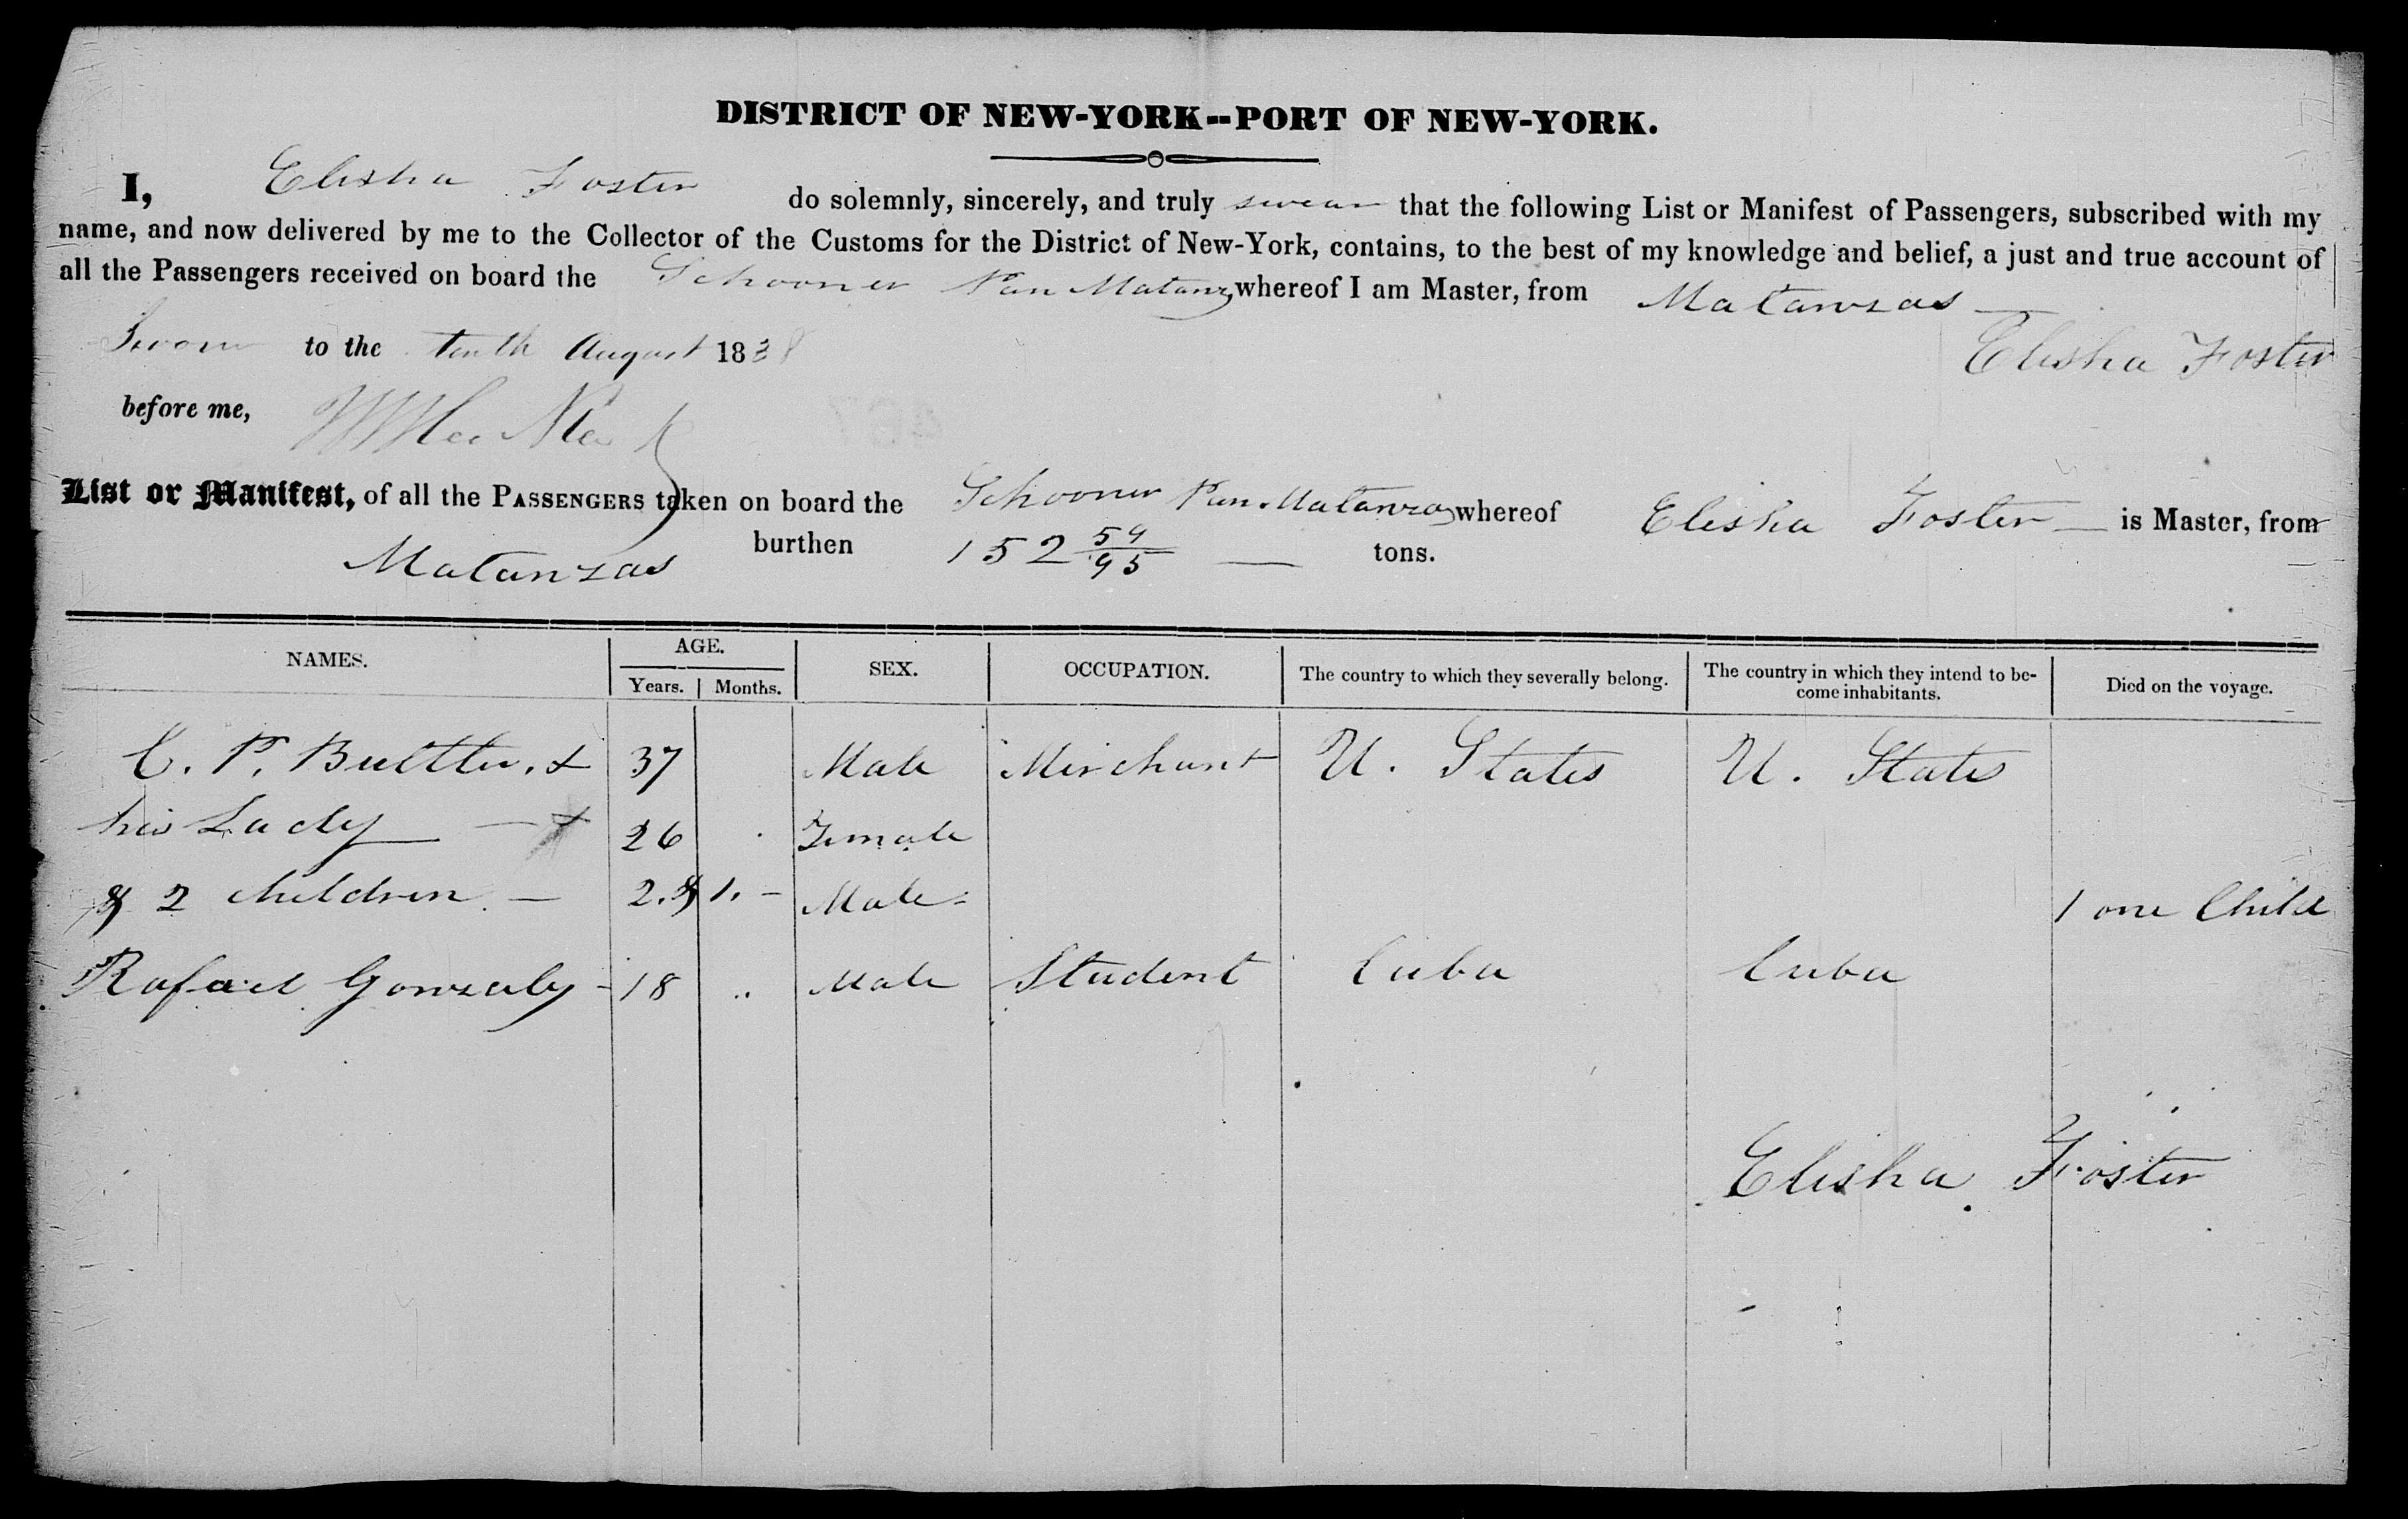 DISTRICT OF NEW-YORK--PORT OF NEW-YORK.
I, Elisha Foster do solemnly, sincerely, and truly swear that the following List or Manifest of Passengers, subscribed with my
name, and now delivered by me to the Collector of the Customs for the District of New-York, contains, to the best of my knowledge and belief, a just and true account of
all the Passengers received on board the Schooner Pan Matanzas whereof I am Master, from Matanzas
Sworn to the tenth August 1838 Elisha Foster
before me,
List or Manifest, of all the PASSENGERS taken on board the Schooner Pan Matanzas whereof Elisha Foster is Master, from
Matanzas burthen 152 59/95 tons.
NAMES. AGE. SEX. OCCUPATION. The country to which they severally belong. The country in which they intend to be- Died on the voyage.
Years. Months. come inhabitants.
C. P. Buttler. & 37 Male Merchant U. States U. States
his Lady — & 26 Female
& 2 children — 2. & 1. - Male 1 one Child
Rafael Gonzaly - 18 .. Male Student Cuba Cuba
Elisha Foster